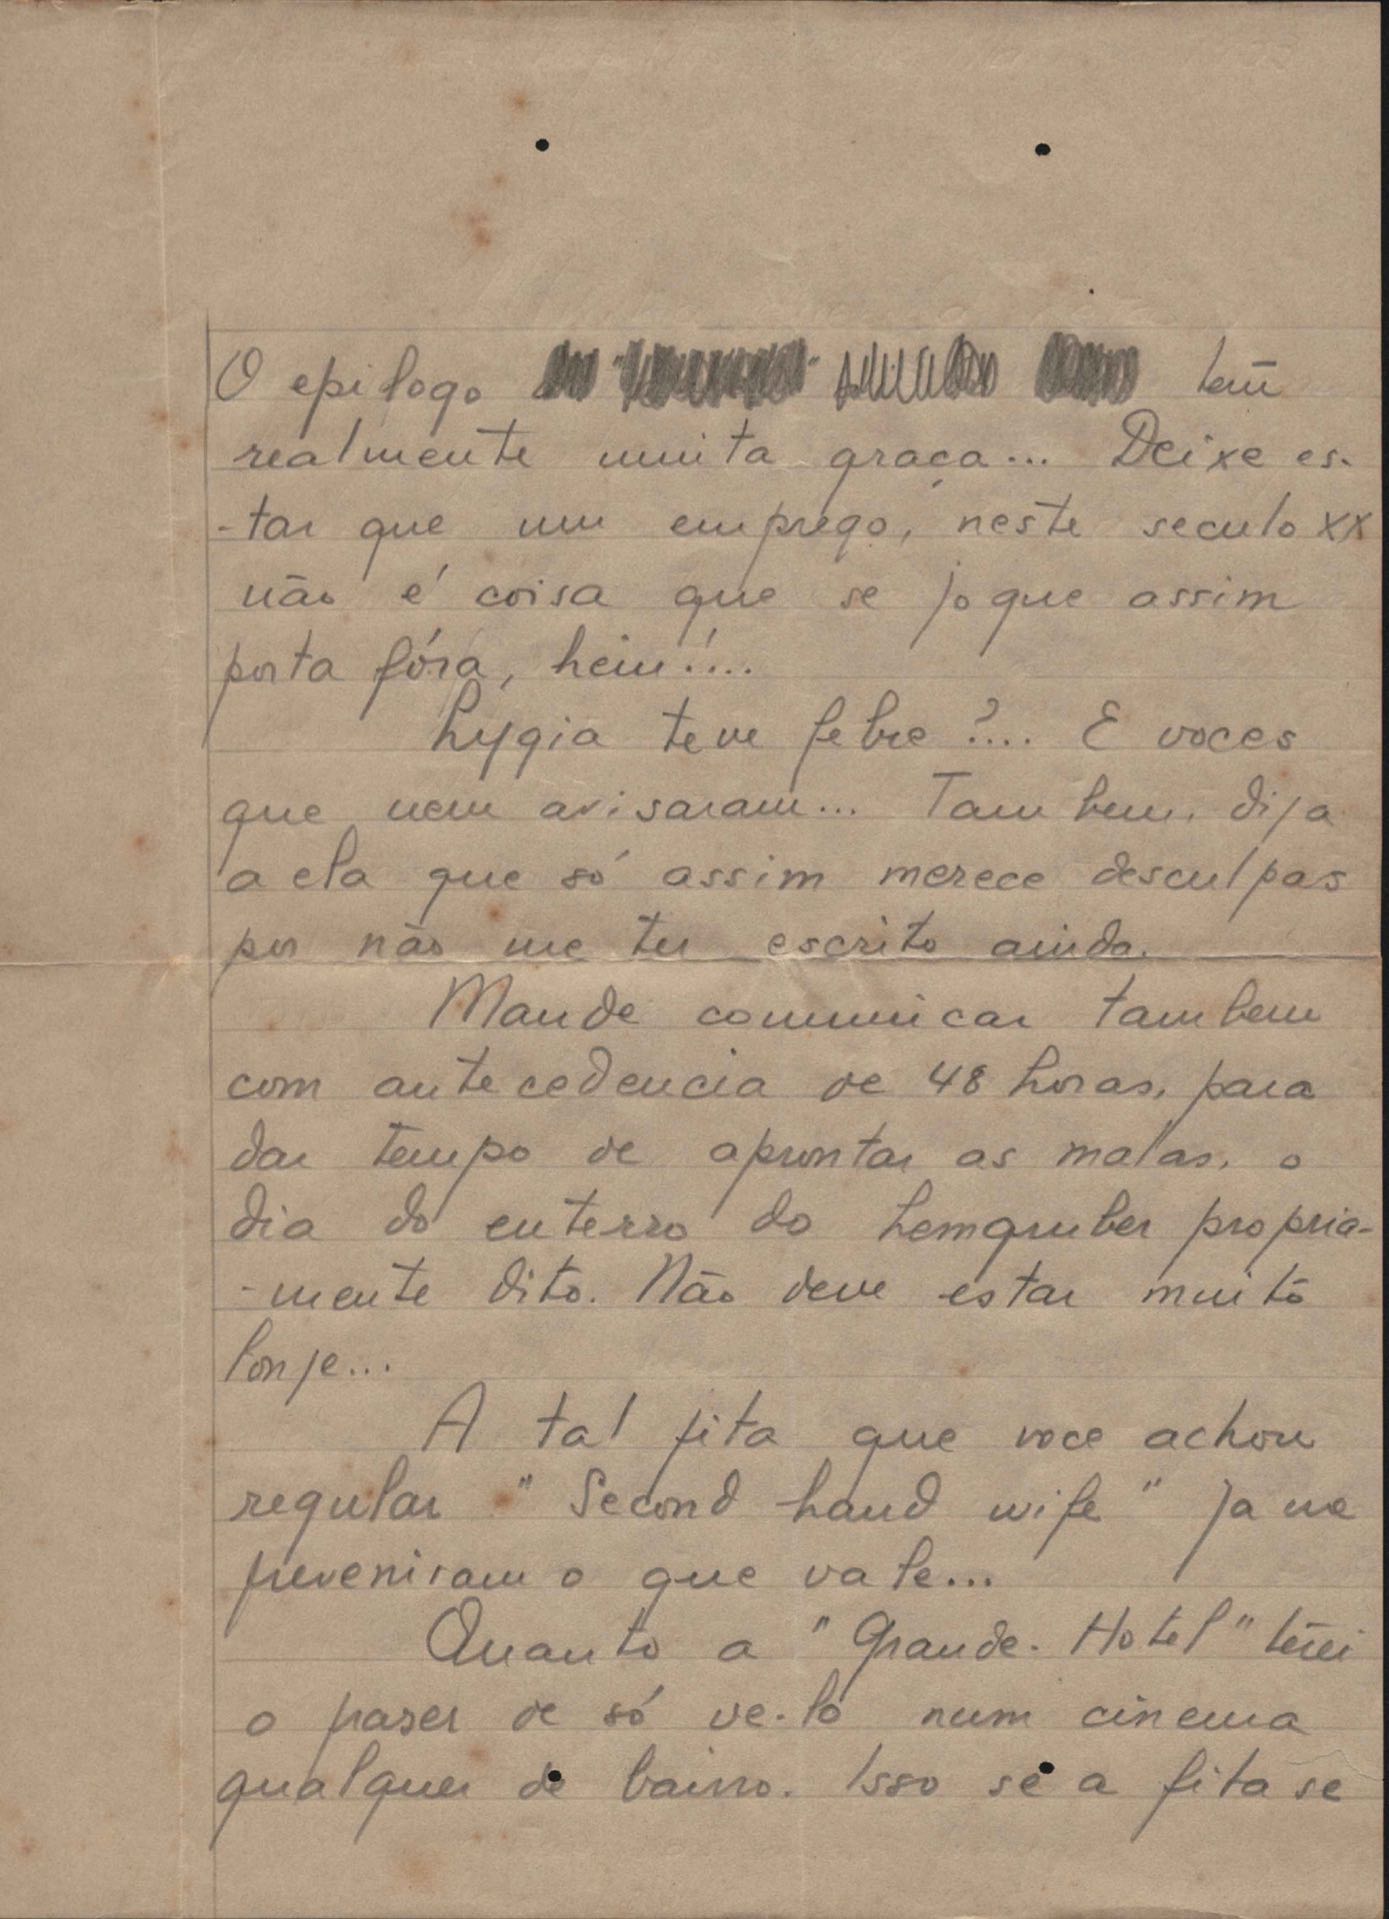 O epilogo tem
realmente muita graça... Deixe es-
-tar que um emprego, neste seculo XX
não é coisa que se jogue assim
porta fóra, hein!...
Lygia teve febre?... E voces
que nem avisaram... Tambem, dija
a ela que só assim merece desculpas
por não me ter escrito ainda.
Mande communicar tambem
com antecedencia de 48 horas, para
dar tempo de aprontar as malas, o
dia do enterro do Lemgruber propria-
-mente dito. Não deve estar muito
lonje...
A tal fita que voce achou
regular "Second hand wife" ja me
preveniram o que vale...
Quanto a "Grande-Hotel" terei
o prazer de só ve-lo num cinema
qualquer de bairro. Isso se a fita se